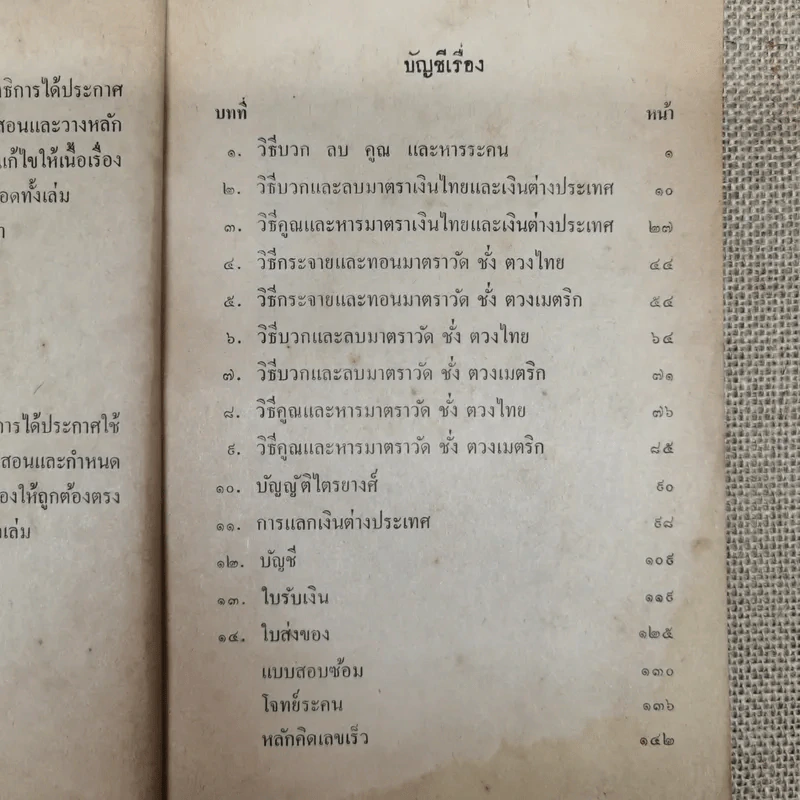 ธิการได้ประกาศ
สอนและวางหลัก
แก้ไขให้เนื้อเรื่อง
อดทั้งเล่ม
การได้ประกาศใช้
สอนและกำหนด
องให้ถูกต้องตรง
เล่ม
บัญชีเรื่อง
บทที่ หน้า
๑. วิธีบวก ลบ คูณ และหารระคน ๑
๒. วิธีบวกและลบมาตราเงินไทยและเงินต่างประเทศ ๑๐
๓. วิธีคูณและหารมาตราเงินไทยและเงินต่างประเทศ ๒๗
๔. วิธีกระจายและทอนมาตราวัด ชั่ง ตวงไทย ๔๔
๕. วิธีกระจายและทอนมาตราวัด ชั่ง ตวงเมตริก ๕๔
๖. วิธีบวกและลบมาตราวัด ชั่ง ตวงไทย ๖๔
๗. วิธีบวกและลบมาตราวัด ชั่ง ตวงเมตริก ๗๑
๘. วิธีคูณและหารมาตราวัด ชั่ง ตวงไทย ๗๖
๙. วิธีคูณและหารมาตราวัด ชั่ง ตวงเมตริก ๘๕
๑๐. บัญญัติไตรยางศ์ ๙๐
๑๑. การแลกเงินต่างประเทศ ๙๘
๑๒. บัญชี ๑๐๙
๑๓. ใบรับเงิน ๑๑๙
๑๔. ใบส่งของ ๑๒๕
แบบสอบซ้อม ๑๓๐
โจทย์ระคน ๑๓๖
หลักคิดเลขเร็ว ๑๔๒